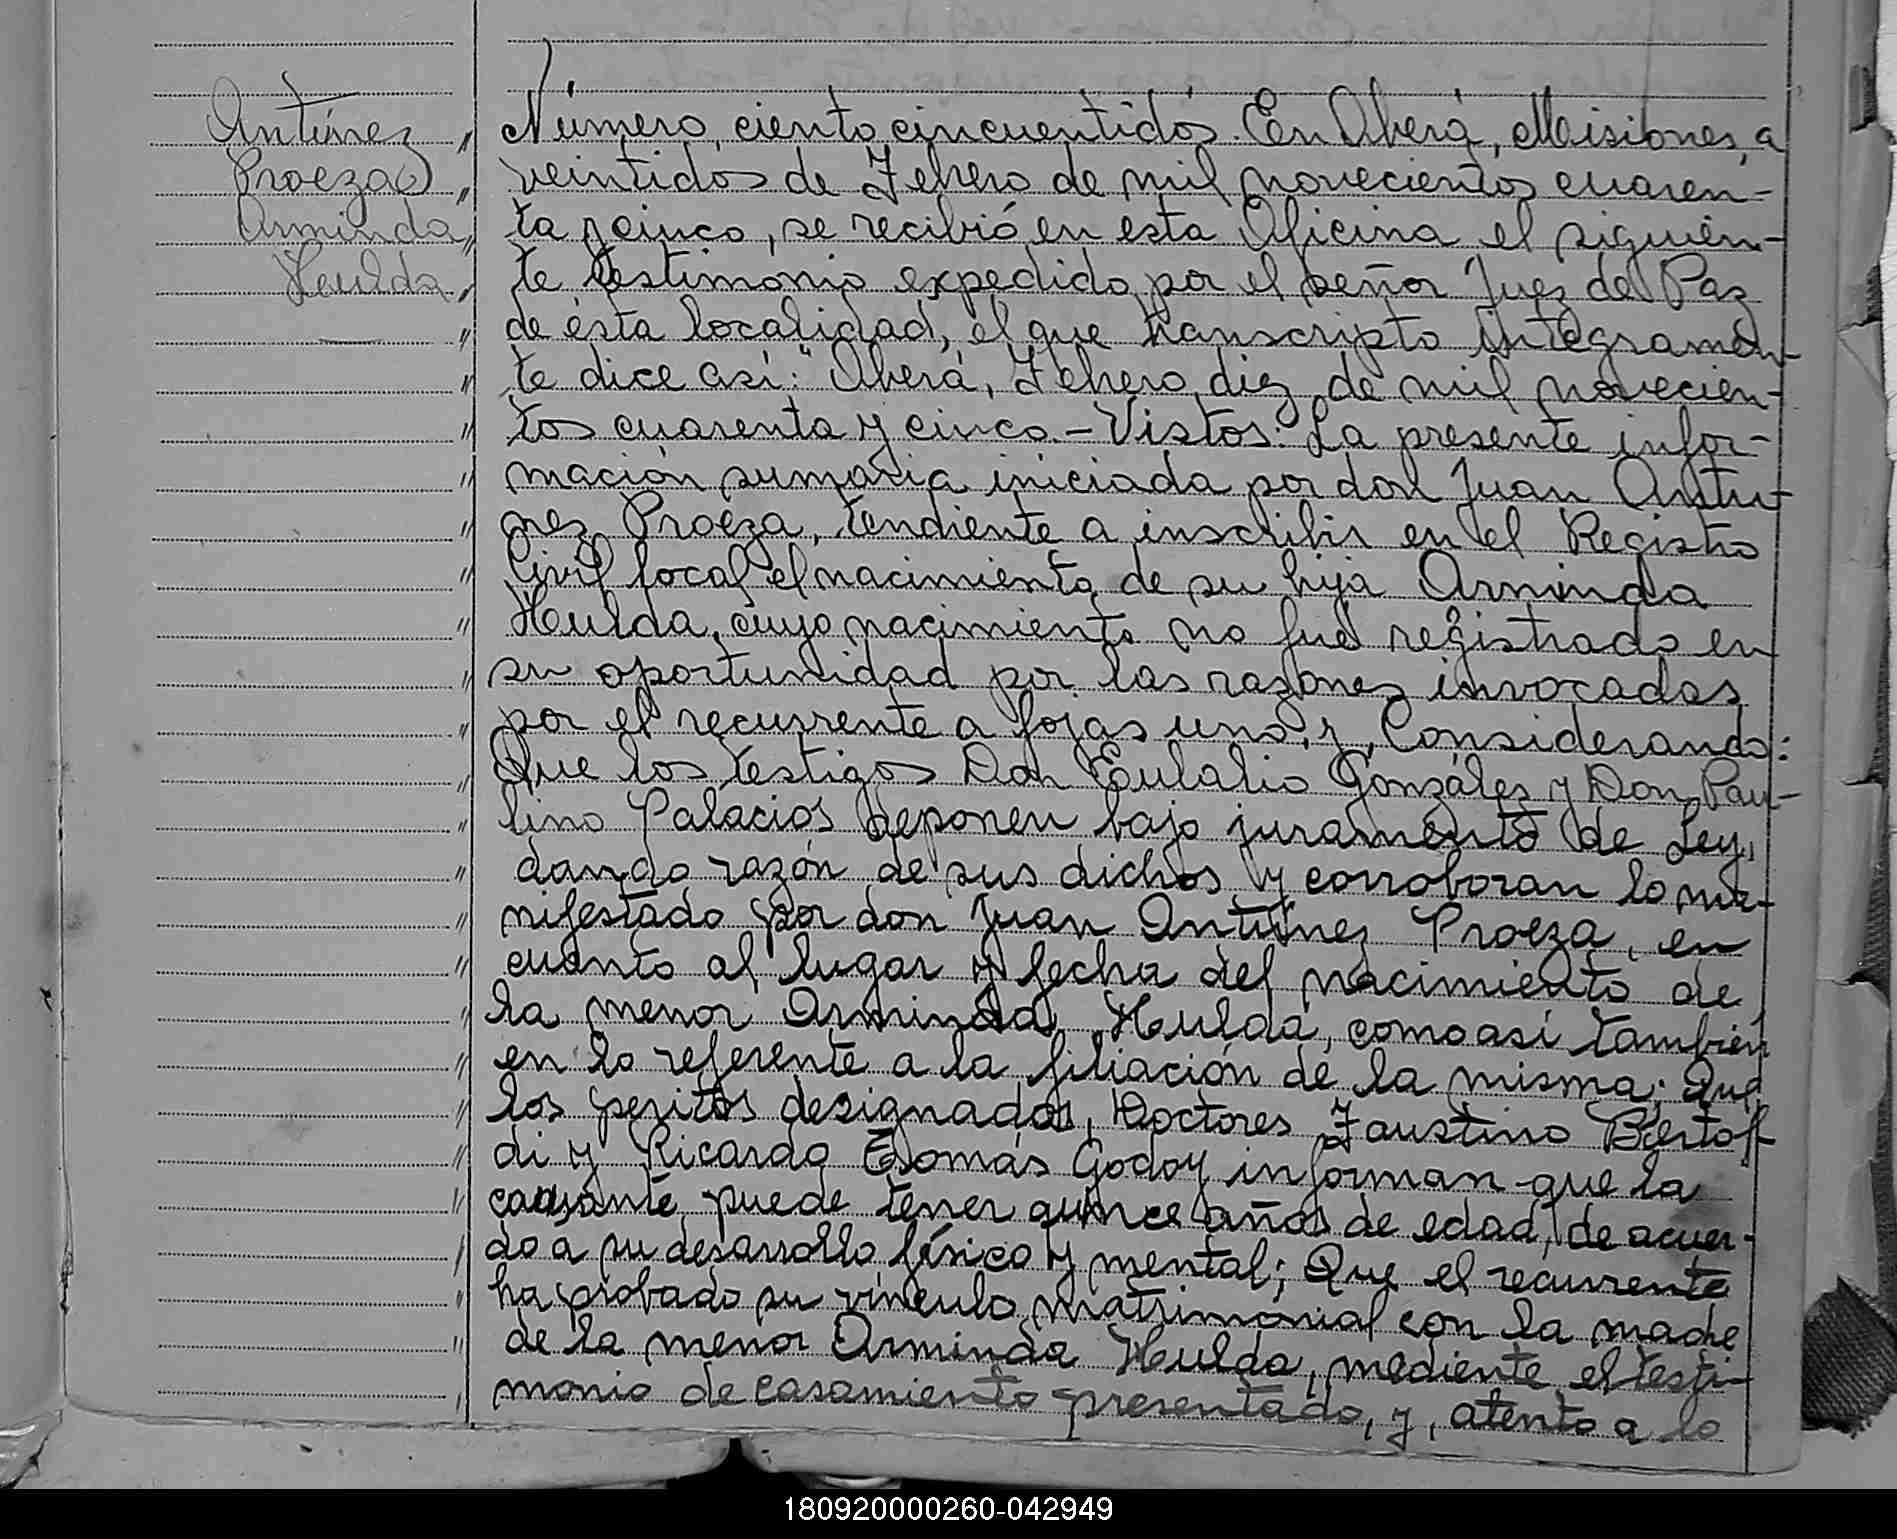 Antúnez
Proeza
Arminda
Hulda
Número ciento cincuentidós. En Oberá, Misiones, a
veintidos de Febrero de mil novecientos cuaren-
ta y cinco, se recibió en esta Oficina el siguien-
te testimonio expedido por el señor Juez de Paz
de ésta localidad, el que transcripto íntegramen-
te dice así: "Oberá, Febrero diez de mil novecien-
tos cuarenta y cinco.- Vistos: La presente infor-
mación sumaria iniciada por don Juan Antu-
nez Proeza, tendiente a inscribir en el Registro
Civil local el nacimiento de su hija Arminda
Hulda, cuyo nacimiento no fué registrado en
su oportunidad por las razones invocadas
por el recurrente a fojas uno, y, Considerando:
Que los testigos Don Eulalio Gonzáles y Don Pau-
lino Palacios deponen bajo juramento de Ley,
dando razón de sus dichos y corroboran lo ma-
nifestado por don Juan Antúnez Proeza, en
cuanto al lugar y fecha del nacimiento de
la menor Arminda Hulda, como así también
en lo referente a la filiación de la misma; Que
los peritos designados, Doctores Faustino Bertol-
di y Ricardo Tomás Godoy informan que la
causante puede tener quince años de edad, de acuer-
do a su desarrollo físico y mental; Que el recurrente
ha probado su vínculo matrimonial con la madre
de la menor Arminda Hulda, mediente el testi-
monio de casamiento presentado, y, atento a lo
180920000260-042949